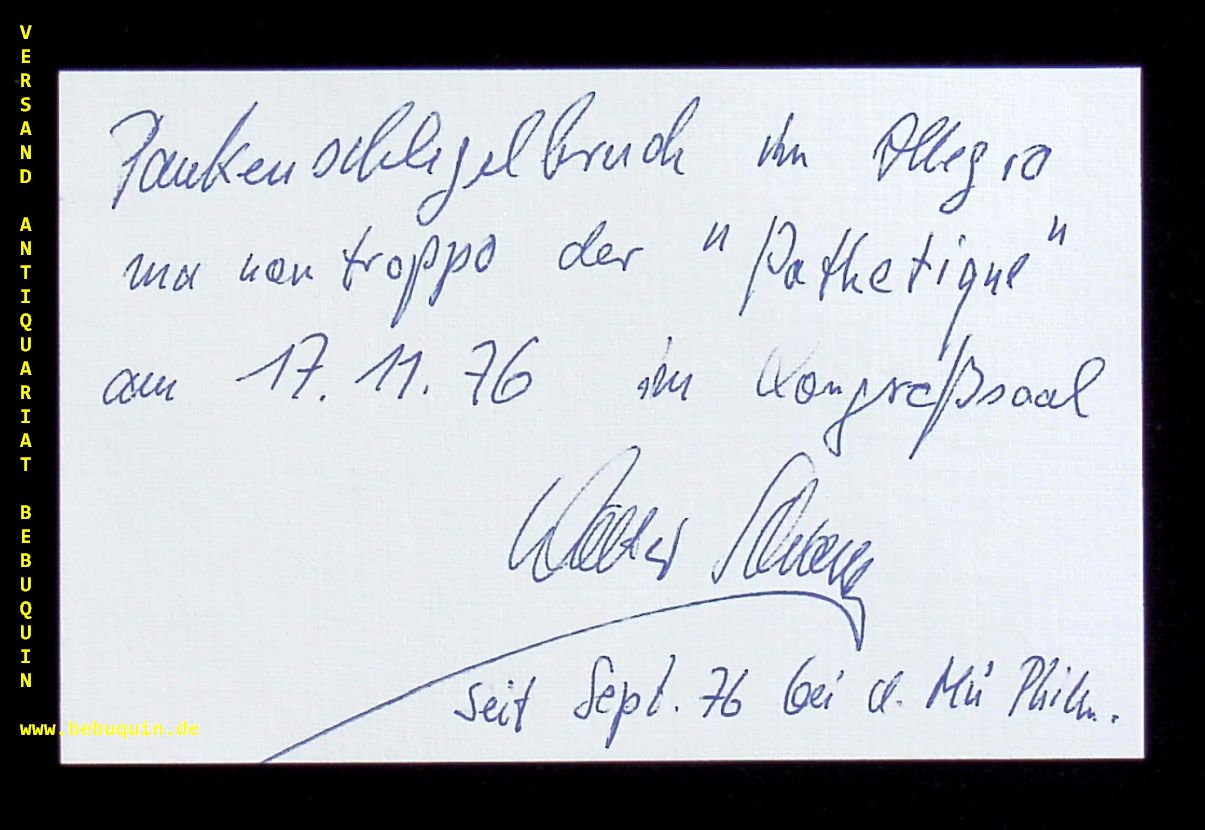 VERSAND ANTIQUARIAT BEBUQUIN
Paukenschlegelbruch im Allegro
ma non troppo der "Pathetique"
am 17. 11. 76 im Kongreßsaal
Walter
seit Sept. 76 bei d. Mü Philh.
www.bebuquin.de